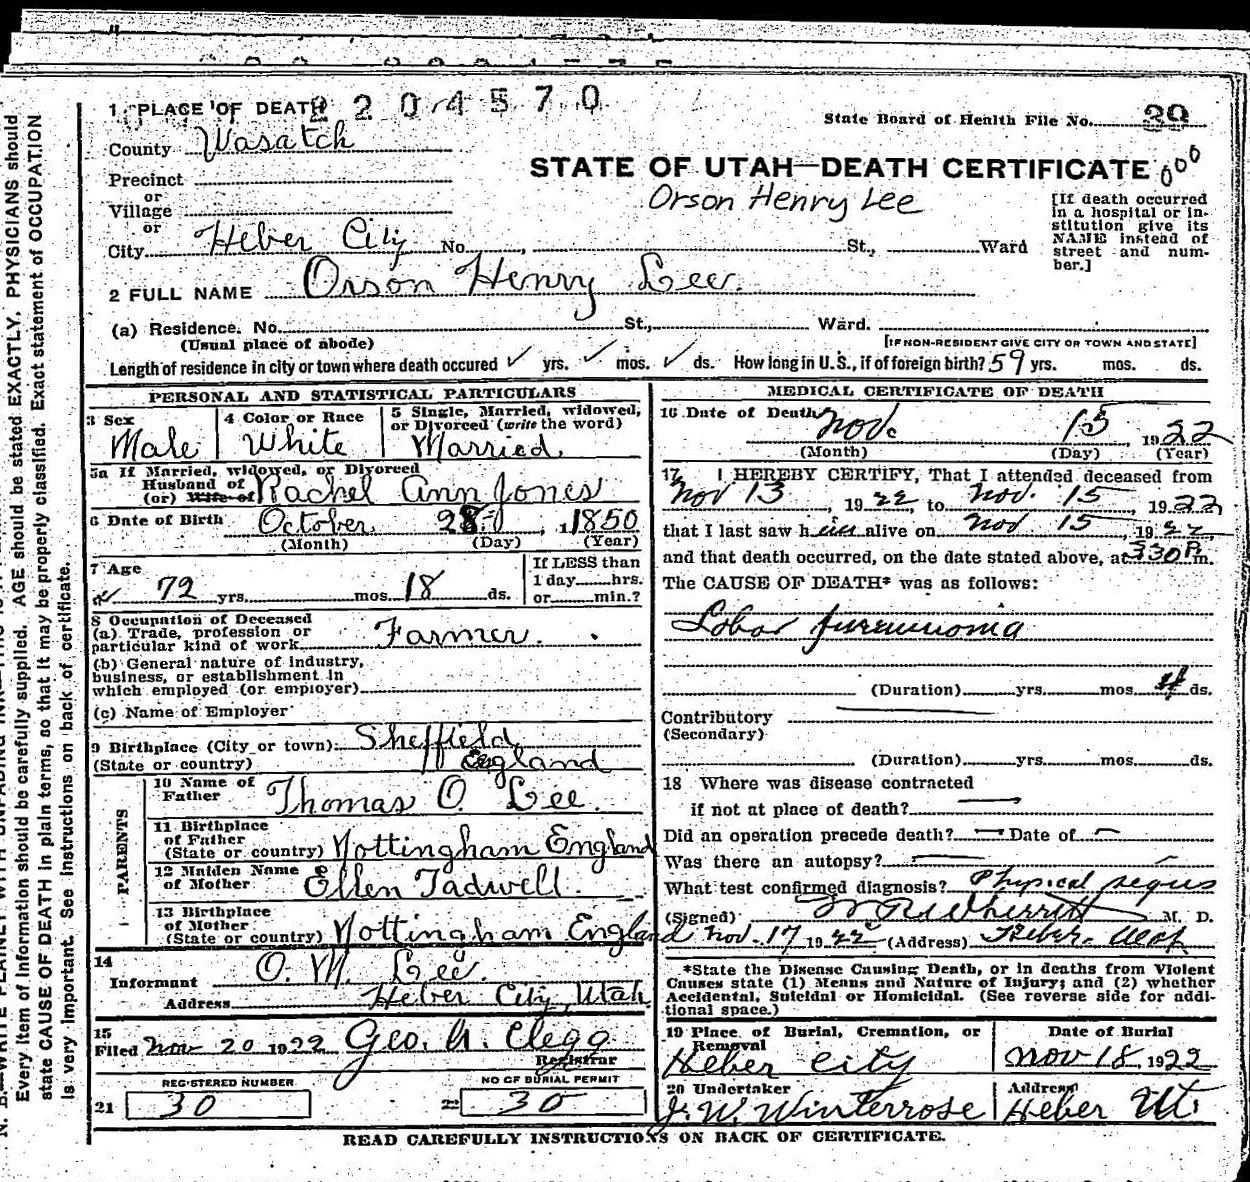 1 PLACE OF DEATH 2204570
State Board of Health File No. 30
County Wasatch
STATE OF UTAH—DEATH CERTIFICATE 000
Orson Henry Lee
Precinct
or
Village
or
City Heber City No. St., Ward
[If death occurred
in a hospital or in-
stitution give its
NAME instead of
street and num-
ber.]
2 FULL NAME Orson Henry Lee
(a) Residence. No. St., Ward.
(Usual place of abode)
[IF NON-RESIDENT GIVE CITY OR TOWN AND STATE]
Length of residence in city or town where death occured ✓ yrs. ✓ mos. ✓ ds. How long in U. S., if of foreign birth? 59 yrs. mos. ds.
PERSONAL AND STATISTICAL PARTICULARS
3 Sex
Male
4 Color or Race
White
5 Single, Married, widowed,
or Divorced (write the word)
Married
5a If Married, widowed, or Divorced
Husband of
(or) Wife of Rachel Ann Jones
6 Date of Birth October 28 1850
(Month) (Day) (Year)
7 Age
72 yrs. mos. 18 ds.
If LESS than
1 day hrs.
or min.?
8 Occupation of Deceased
(a) Trade, profession or
particular kind of work Farmer.
(b) General nature of industry,
business, or establishment in
which employed (or employer)
(c) Name of Employer
9 Birthplace (City or town) Sheffield
(State or country) England
PARENTS
10 Name of
Father Thomas O. Lee.
11 Birthplace
of Father
(State or country) Nottingham England
12 Maiden Name
of Mother Ellen Tadwell.
13 Birthplace
of Mother
(State or country) Nottingham England
14
Informant O. M. Lee.
Address Heber City, Utah
15
Filed Nov 20 1922 Geo. A. Clegg
Registrar
REGISTERED NUMBER
21 30
NO OF BURIAL PERMIT
22 30
MEDICAL CERTIFICATE OF DEATH
16 Date of Death
Nov. 15, 1922
(Month) (Day) (Year)
17 I HEREBY CERTIFY, That I attended deceased from
Nov 13, 1922, to Nov. 15, 1922
that I last saw him alive on Nov 15, 1922
and that death occurred, on the date stated above, at 330 P. m.
The CAUSE OF DEATH* was as follows:
Lobar pneumonia
(Duration) yrs. mos. 4 ds.
Contributory
(Secondary)
(Duration) yrs. mos. ds.
18 Where was disease contracted
if not at place of death?
Did an operation precede death? Date of
Was there an autopsy?
What test confirmed diagnosis? Physical signs
(Signed) W R Wherritt M. D.
Nov. 17 1922 (Address) Heber Utah
*State the Disease Causing Death, or in deaths from Violent
Causes state (1) Means and Nature of Injury; and (2) whether
Accidental, Suicidal or Homicidal. (See reverse side for addi-
tional space.)
19 Place of Burial, Cremation, or
Removal
Heber City
Date of Burial
Nov 18, 1922
20 Undertaker
J. W. Winterrose
Address
Heber Ut.
READ CAREFULLY INSTRUCTIONS ON BACK OF CERTIFICATE.
Every item of Information should be carefully supplied. AGE should be stated EXACTLY. PHYSICIANS should
state CAUSE OF DEATH in plain terms, so that it may be properly classified. Exact statement of OCCUPATION
is very important. See instructions on back of certificate.